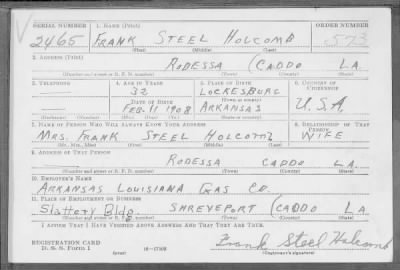 SERIAL NUMBER 1. NAME (Print) ORDER NUMBER
V 2465 FRANK STEEL HOLCOMB 573
(First) (Middle) (Last)
2. ADDRESS (Print)
RODESSA (CADDO LA.
(Number and street or R. F. D. number) (Town) (County) (State)
3. TELEPHONE 4. AGE IN YEARS 5. PLACE OF BIRTH 6. COUNTRY OF CITIZENSHIP
32 LOCKESBURG
DATE OF BIRTH (Town or county) U.S.A
FEB. 11 1908 ARKANSAS
(Exchange) (Number) (Mo.) (Day) (Yr.) (State or country)
7. NAME OF PERSON WHO WILL ALWAYS KNOW YOUR ADDRESS 8. RELATIONSHIP OF THAT PERSON
MRS. FRANK STEEL HOLCOMB WIFE
(Mr., Mrs., Miss) (First) (Middle) (Last)
9. ADDRESS OF THAT PERSON
RODESSA CADDO LA.
(Number and street or R. F. D. number) (Town) (County) (State)
10. EMPLOYER'S NAME
ARKANSAS LOUISIANA GAS CO.
11. PLACE OF EMPLOYMENT OR BUSINESS
Slattery Bldg. SHREVEPORT (CADDO LA
(Number and street or R. F. D. number) (Town) (County) (State)
I AFFIRM THAT I HAVE VERIFIED ABOVE ANSWERS AND THAT THEY ARE TRUE.
REGISTRATION CARD
D. S. S. Form 1 (over) 16—17105 Frank Steel Holcomb
(Registrant's signature)